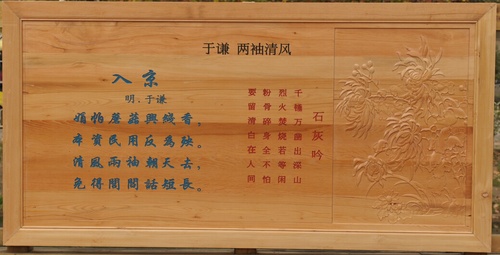 于谦 两袖清风
入京
明、于谦
絹帕蘑菇與綫香，
本資民用反為殃。
清風兩袖朝天去，
免得閭閻話短長。
石灰吟
千錘万凿出深山
烈火焚烧若等闲
粉骨碎身全不怕
要留清白在人间